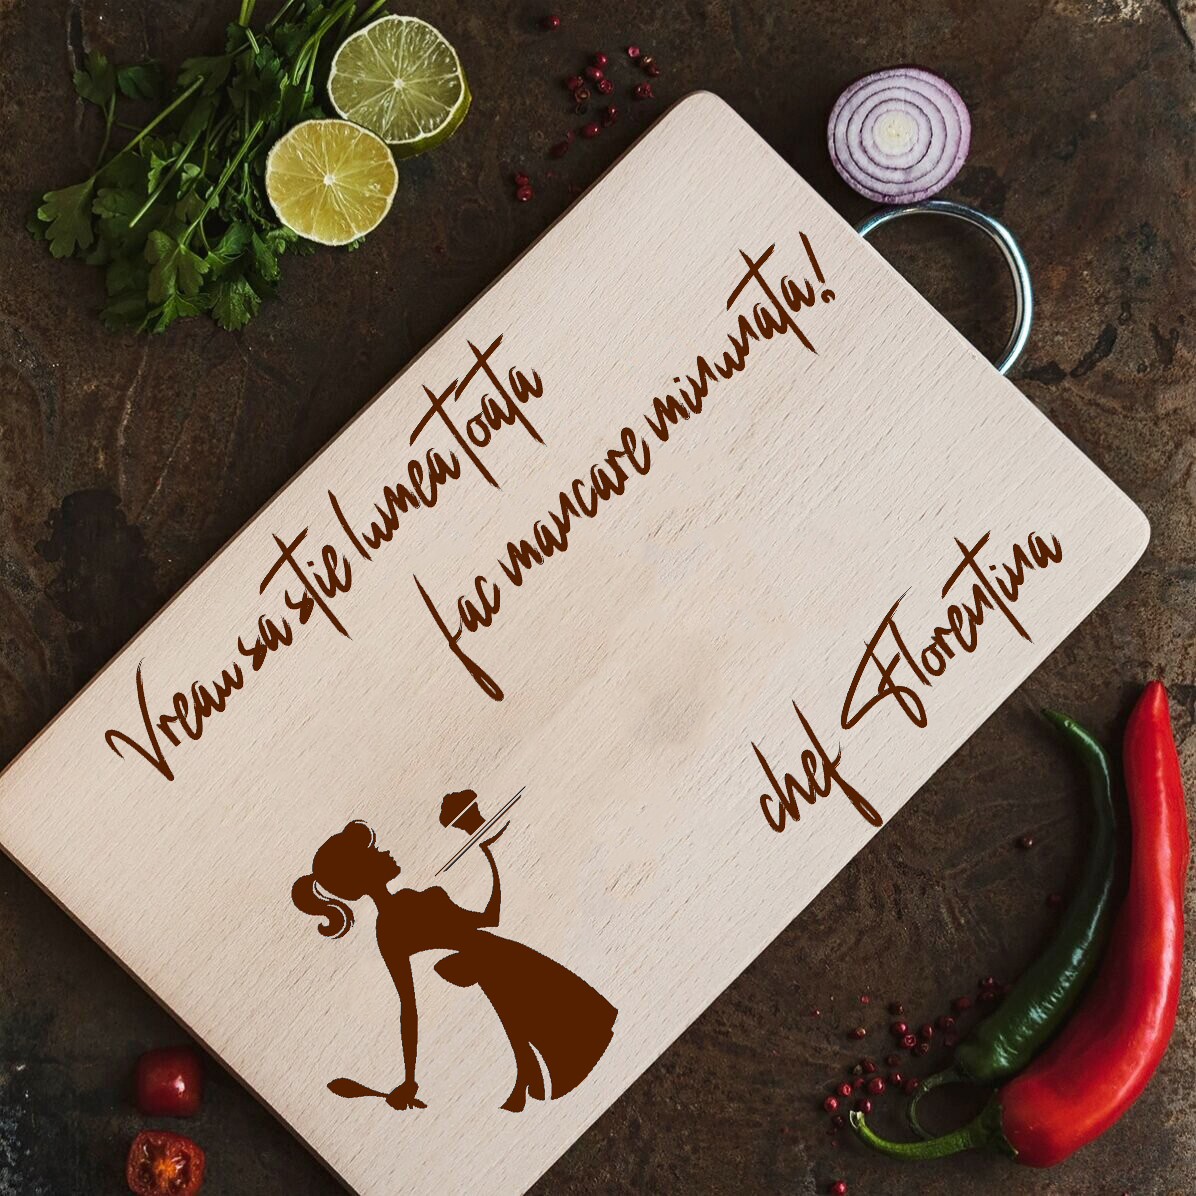 Vreau sa stie lumea toata
fac mancare minunata!
chef Florentina